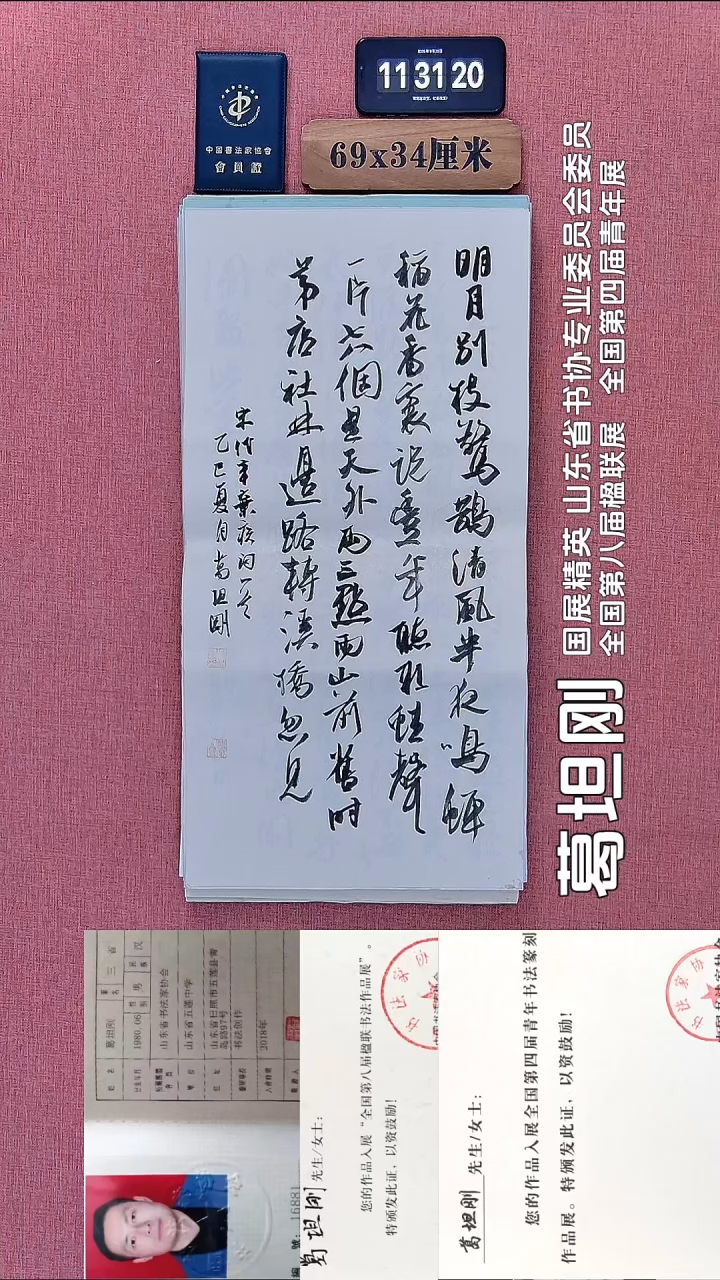 中國書法家協會
會員證
11 31 20
69x34厘米
明月別枝驚鵲清風半夜鳴蝉
稻花香裏说豐年聽取蛙聲
一片七八個星天外兩三點雨山前舊時
茅店社林邊路轉溪橋忽見
宋代辛棄疾词一首
乙巳夏月葛坦刚
国展精英 山东省书协专业委员会委员
全国第八届楹联展 全国第四届青年展
葛坦刚
姓名 葛坦刚 三省
1980.06 性别 男 民族 汉
山东省书法家协会
单位 山东省五莲中学
住址 山东省日照市五莲县青
岛路97号
书法创作
2018年
编號: 16881
葛坦刚 先生/女士:
您的作品入展“全国第八届楹联书法作品展”。
特颁发此证，以资鼓励!
葛坦刚 先生/女士:
您的作品入展全国第四届青年书法篆刻
作品展。特颁发此证，以资鼓励!